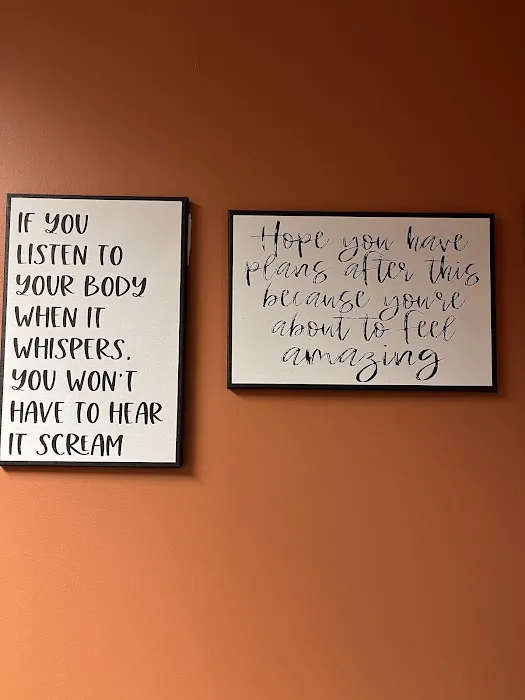 IF YOU
LISTEN TO
YOUR BODY
WHEN IT
WHISPERS.
YOU WON'T
HAVE TO HEAR
IT SCREAM
Hope you have
plans after this
because you're
about to feel
amazing